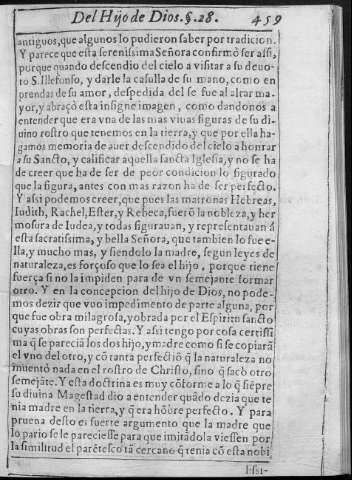 Del Hijo de Dios. §. 28. 459
antiguos, que algunos lo pudieron saber por tradicion.
Y parece que esta serenissima Señora confirmò ser assi,
porque quando descendio del cielo a visitar a su deuo-
to S. Illefonso, y darle la casulla de su mano, como en
prendas de su amor, despedida del se fue al altar ma-
yor, y abraçò esta insigne imagen, como dandonos a
entender que era vna de las mas viuas figuras de su di-
uino rostro que tenemos en la tierra, y que por ella ha-
gamos memoria de auer descendido del cielo a honrar
a su Sancto, y calificar aquella sancta Iglesia, y no se ha
de creer que ha de ser de peor condicion lo figurado
que la figura, antes con mas razon ha de ser perfecto.
Y assi podemos creer, que pues las matronas Hebreas,
Iudith, Rachel, Ester, y Rebeca, fuerõ la nobleza, y her
mosura de Iudea, y todas figurauan, y representauan á
esta sacratissima, y bella Señora, que tambien lo fue e-
lla, y mucho mas, y siendolo la madre, segun leyes de
naturaleza, es forçoso que lo sea el hijo, porque tiene
fuerça si no la impiden para de vn semejante formar
otro. Y en la concepcion del hijo de Dios, no pode-
mos dezir que vuo impedimento de parte alguna, por
que fue obra milagrosa, y obrada por el Espiritu sancto
cuyas obras son perfectas. Y assi tengo por cosa certissi
ma q̃ se pareciã los dos hijo, y madre como si se copiarã
el vno del otro, y cõ tanta perfecciõ q̃ la naturaleza no
muentò nada en el rostro de Christo, sino q̃ sacò otro
semejãte. Y esta doctrina es muy cõforme a lo q̃ siẽpre
su diuina Magestad dio a entender quãdo dezia que te
nia madre en la tierra, y q̃ era hõbre perfecto. Y para
prueua desto es fuerte argumento que la madre que
lo pario se le pareciesse para que imitãdola viessen por
la similitud el parẽtesco tã cercano q̃ tenia cõ esta nobi
lissi-